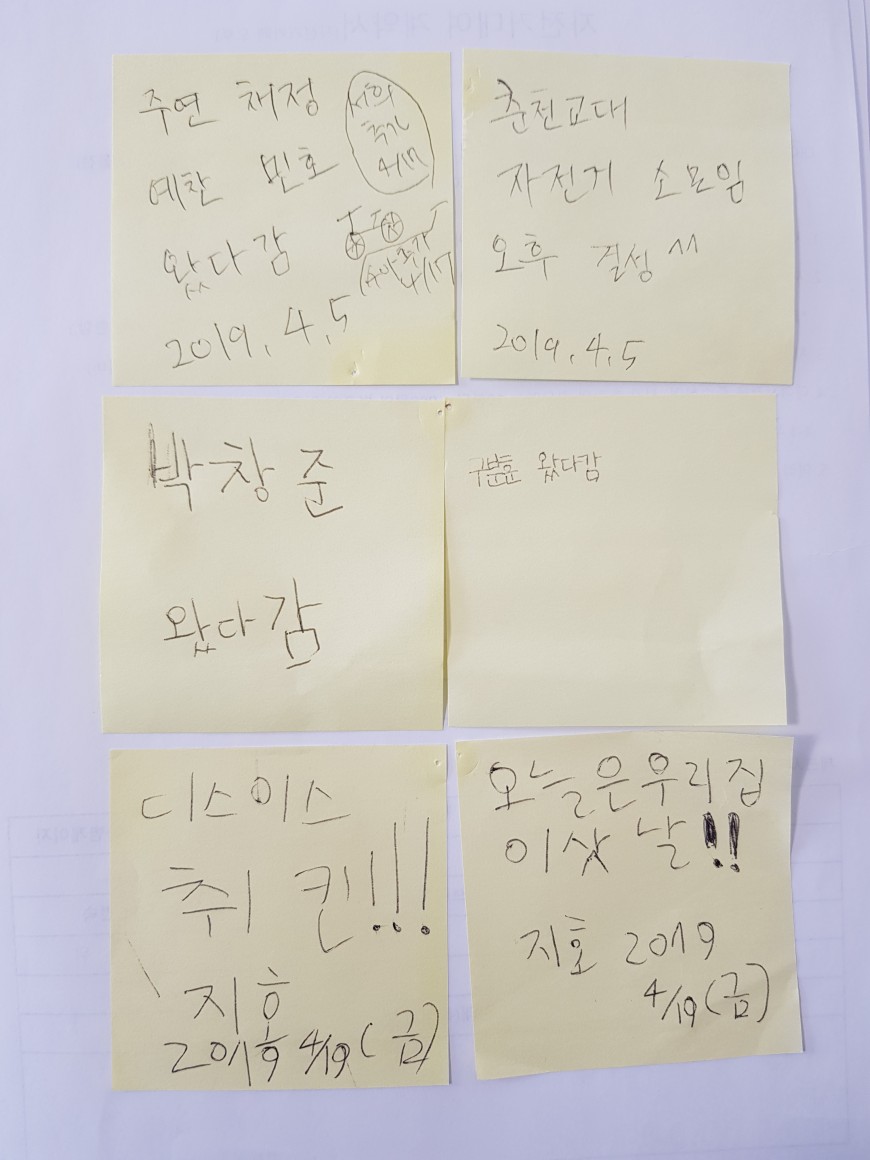 주연 채정
예찬 민호
왔다감
2019.4.5
서희
추가
4/17
추가
4/17
춘천교대
자전거 소모임
오후 결성 ^^
2019.4.5
박창준
왔다감
구분훈 왔다감
디스이스
취킨!!!
지호
2019 4/19(금)
오늘은우리집
이삿날!!
지호 2019
4/19(금)